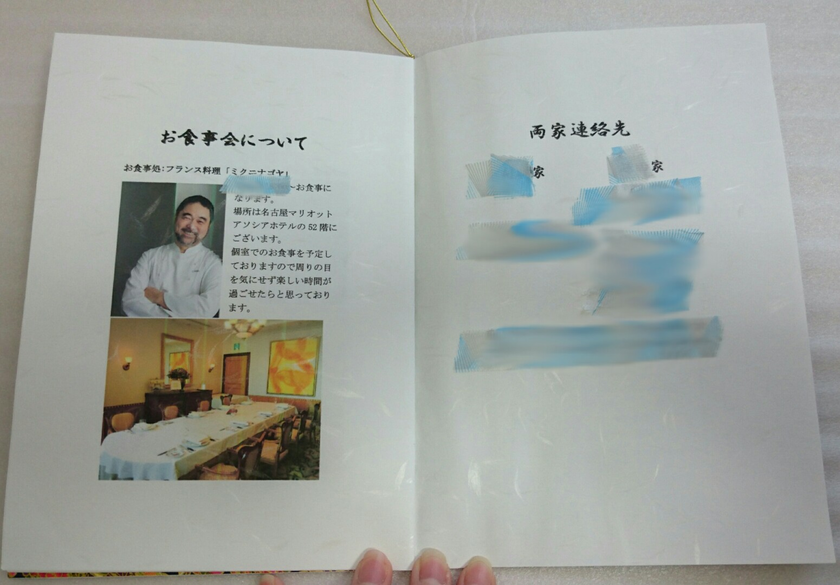 お食事会について
お食事処:フランス料理「ミクニナゴヤ」
~お食事に
なります。
場所は名古屋マリオット
アソシアホテルの52階に
ございます。
個室でのお食事を予定し
ておりますので周りの目
を気にせず楽しい時間が
過ごせたらと思っており
ます。
両家連絡先
家
家